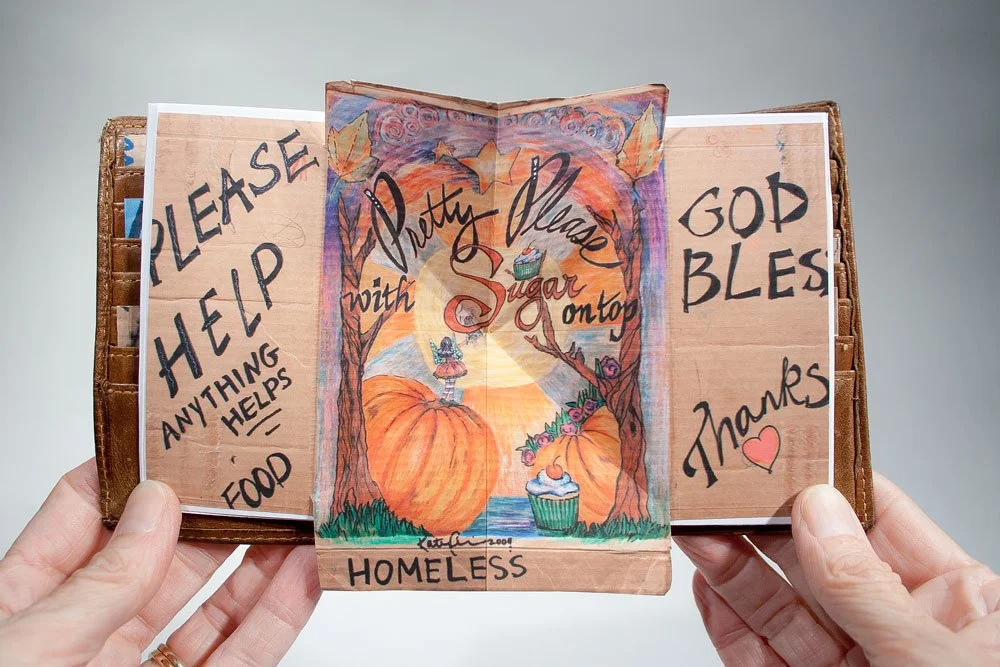 PLEASE
HELP
ANYTHING
HELPS
FOOD
Pretty Please
with Sugar
on top
2009
HOMELESS
GOD
BLESS
Thanks